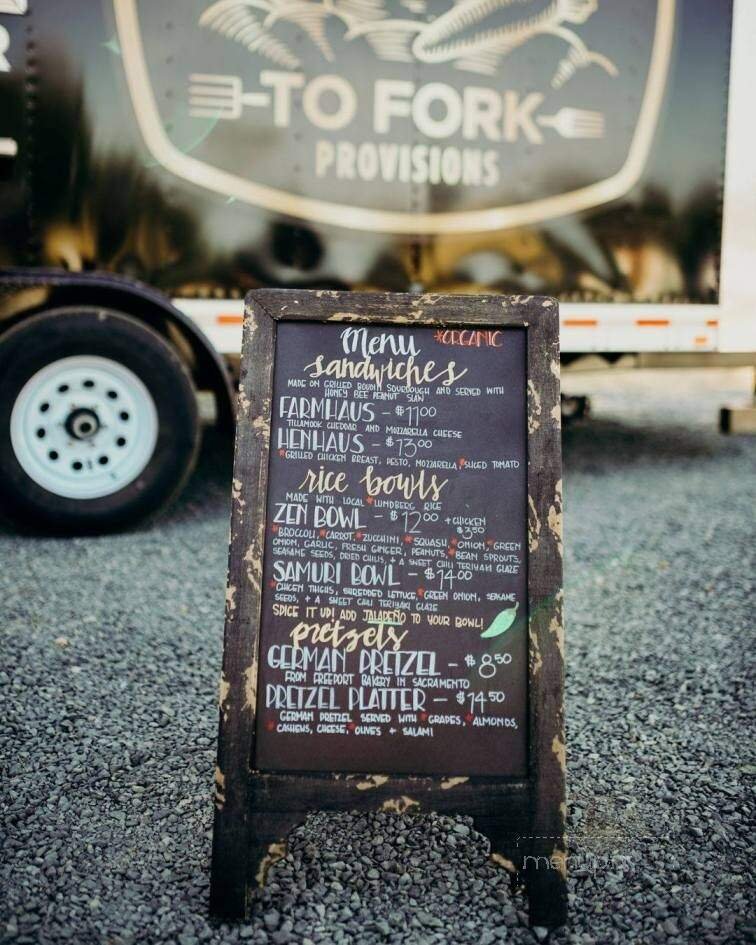 TO FORK
PROVISIONS
Menu *ORGANIC
sandwiches
MADE ON GRILLED BOUDIN SOURDOUGH AND SERVED WITH
HONEY BEE PEANUT SLAW
FARMHAUS - $11.00
TILLAMOOK CHEDDAR AND MOZZARELLA CHEESE
HENHAUS - $13.00
*GRILLED CHICKEN BREAST, PESTO, MOZZARELLA, *SLICED TOMATO
rice bowls
MADE WITH LOCAL *LUNDBERG RICE
ZEN BOWL - $12.00 +CHICKEN $3.50
*BROCCOLI, *CARROT, *ZUCCHINI, *SQUASH, *ONION, *GREEN
ONION, GARLIC, FRESH GINGER, PEANUTS, *BEAN SPROUTS,
SEASAME SEEDS, DRIED CHILIS, + A SWEET CHILI TERIYAKI GLAZE
SAMURI BOWL - $14.00
*CHICEN THIGHS, SHREDDED LETTUCE, *GREEN ONION, SESAME
SEEDS, + A SWEET CHILI TERIYAKI GLAZE
SPICE IT UP! ADD JALAPEÑO TO YOUR BOWL!
pretzels
GERMAN PRETZEL - $8.50
FROM FREEPORT BAKERY IN SACRAMENTO
PRETZEL PLATTER - $14.50
GERMAN PRETZEL SERVED WITH *GRAPES, *ALMONDS,
*CASHEWS, CHEESE, *OLIVES + SALAMI